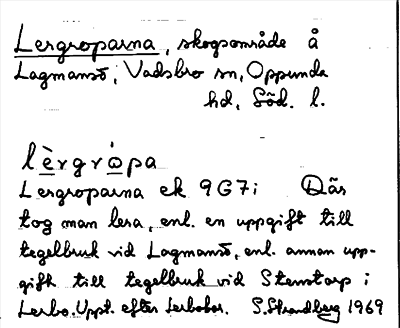 Lergroparna, skogsområde å
Lagmansö, Vadsbro sn, Oppunda
hd, Söd. l.
lèrgró̱pa
Lergroparna ek 9G7i Där
tog man lera, enl. en uppgift till
tegelbruk vid Lagmansö, enl. annan upp-
gift till tegelbruk vid Stenstorp i
Lerbo. Uppt. efter Lerbobor. S. Strandberg 1969